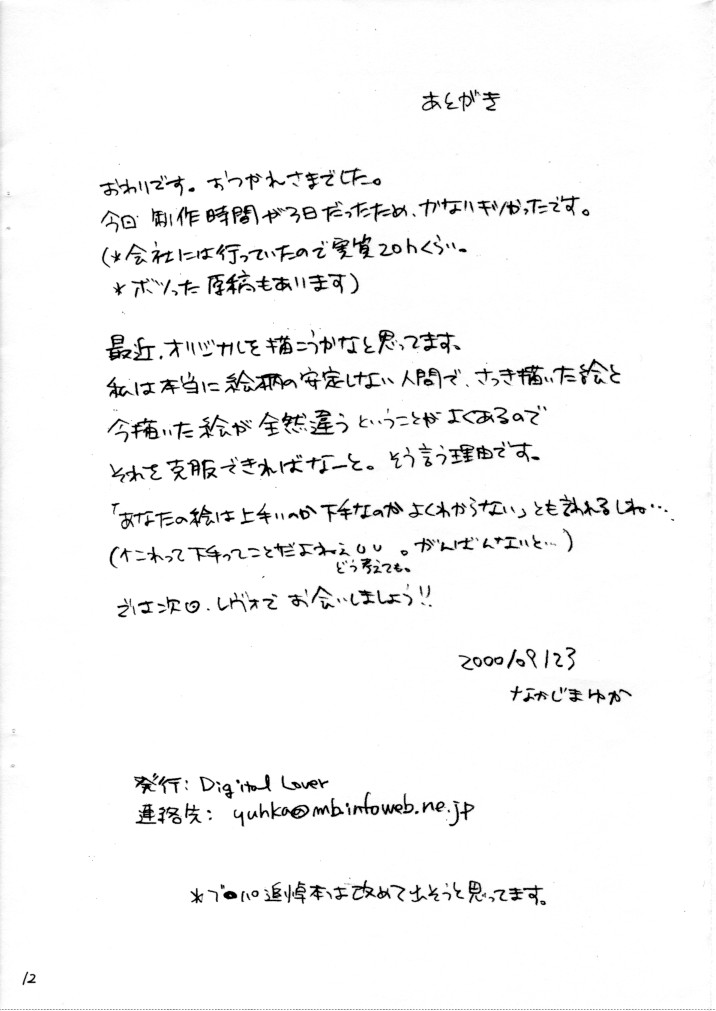 あとがき
おわりです。おつかれさまでした。
今回 制作時間が3日だったため、かなりギリかったです。
(*会社には行っていたので実質20hくらい。
*ボツった原稿もあります)
最近、オリジナルを描こうかなと思ってます。
私は本当に絵柄の安定しない人間で、さっき描いた絵と
今描いた絵が全然違うということがよくあるので
それを克服できればなーと。そう言う理由です。
「あなたの絵は上手いのか下手なのかよくわからない」とも言われるしね…
(これって下手ってことだよねぇUU。がんばんないと…)
どう考えても。
では次回、レヴォでお会いしましょう!!
2000/09/23
なかじまゆか
発行: Digital Lover
連絡先: yuhka@mb.infoweb.ne.jp
*プロパ追悼本は改めて出そうと思ってます。
12